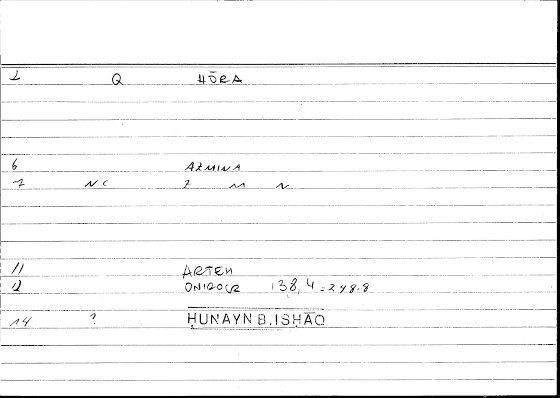 1 Q HŌRA
6 AZMINA
7 NC Z M N
11 ARTEM
12 ONIROCR 138,4 = 248.8
14 ? ḤUNAYN B. ISḤĀQ